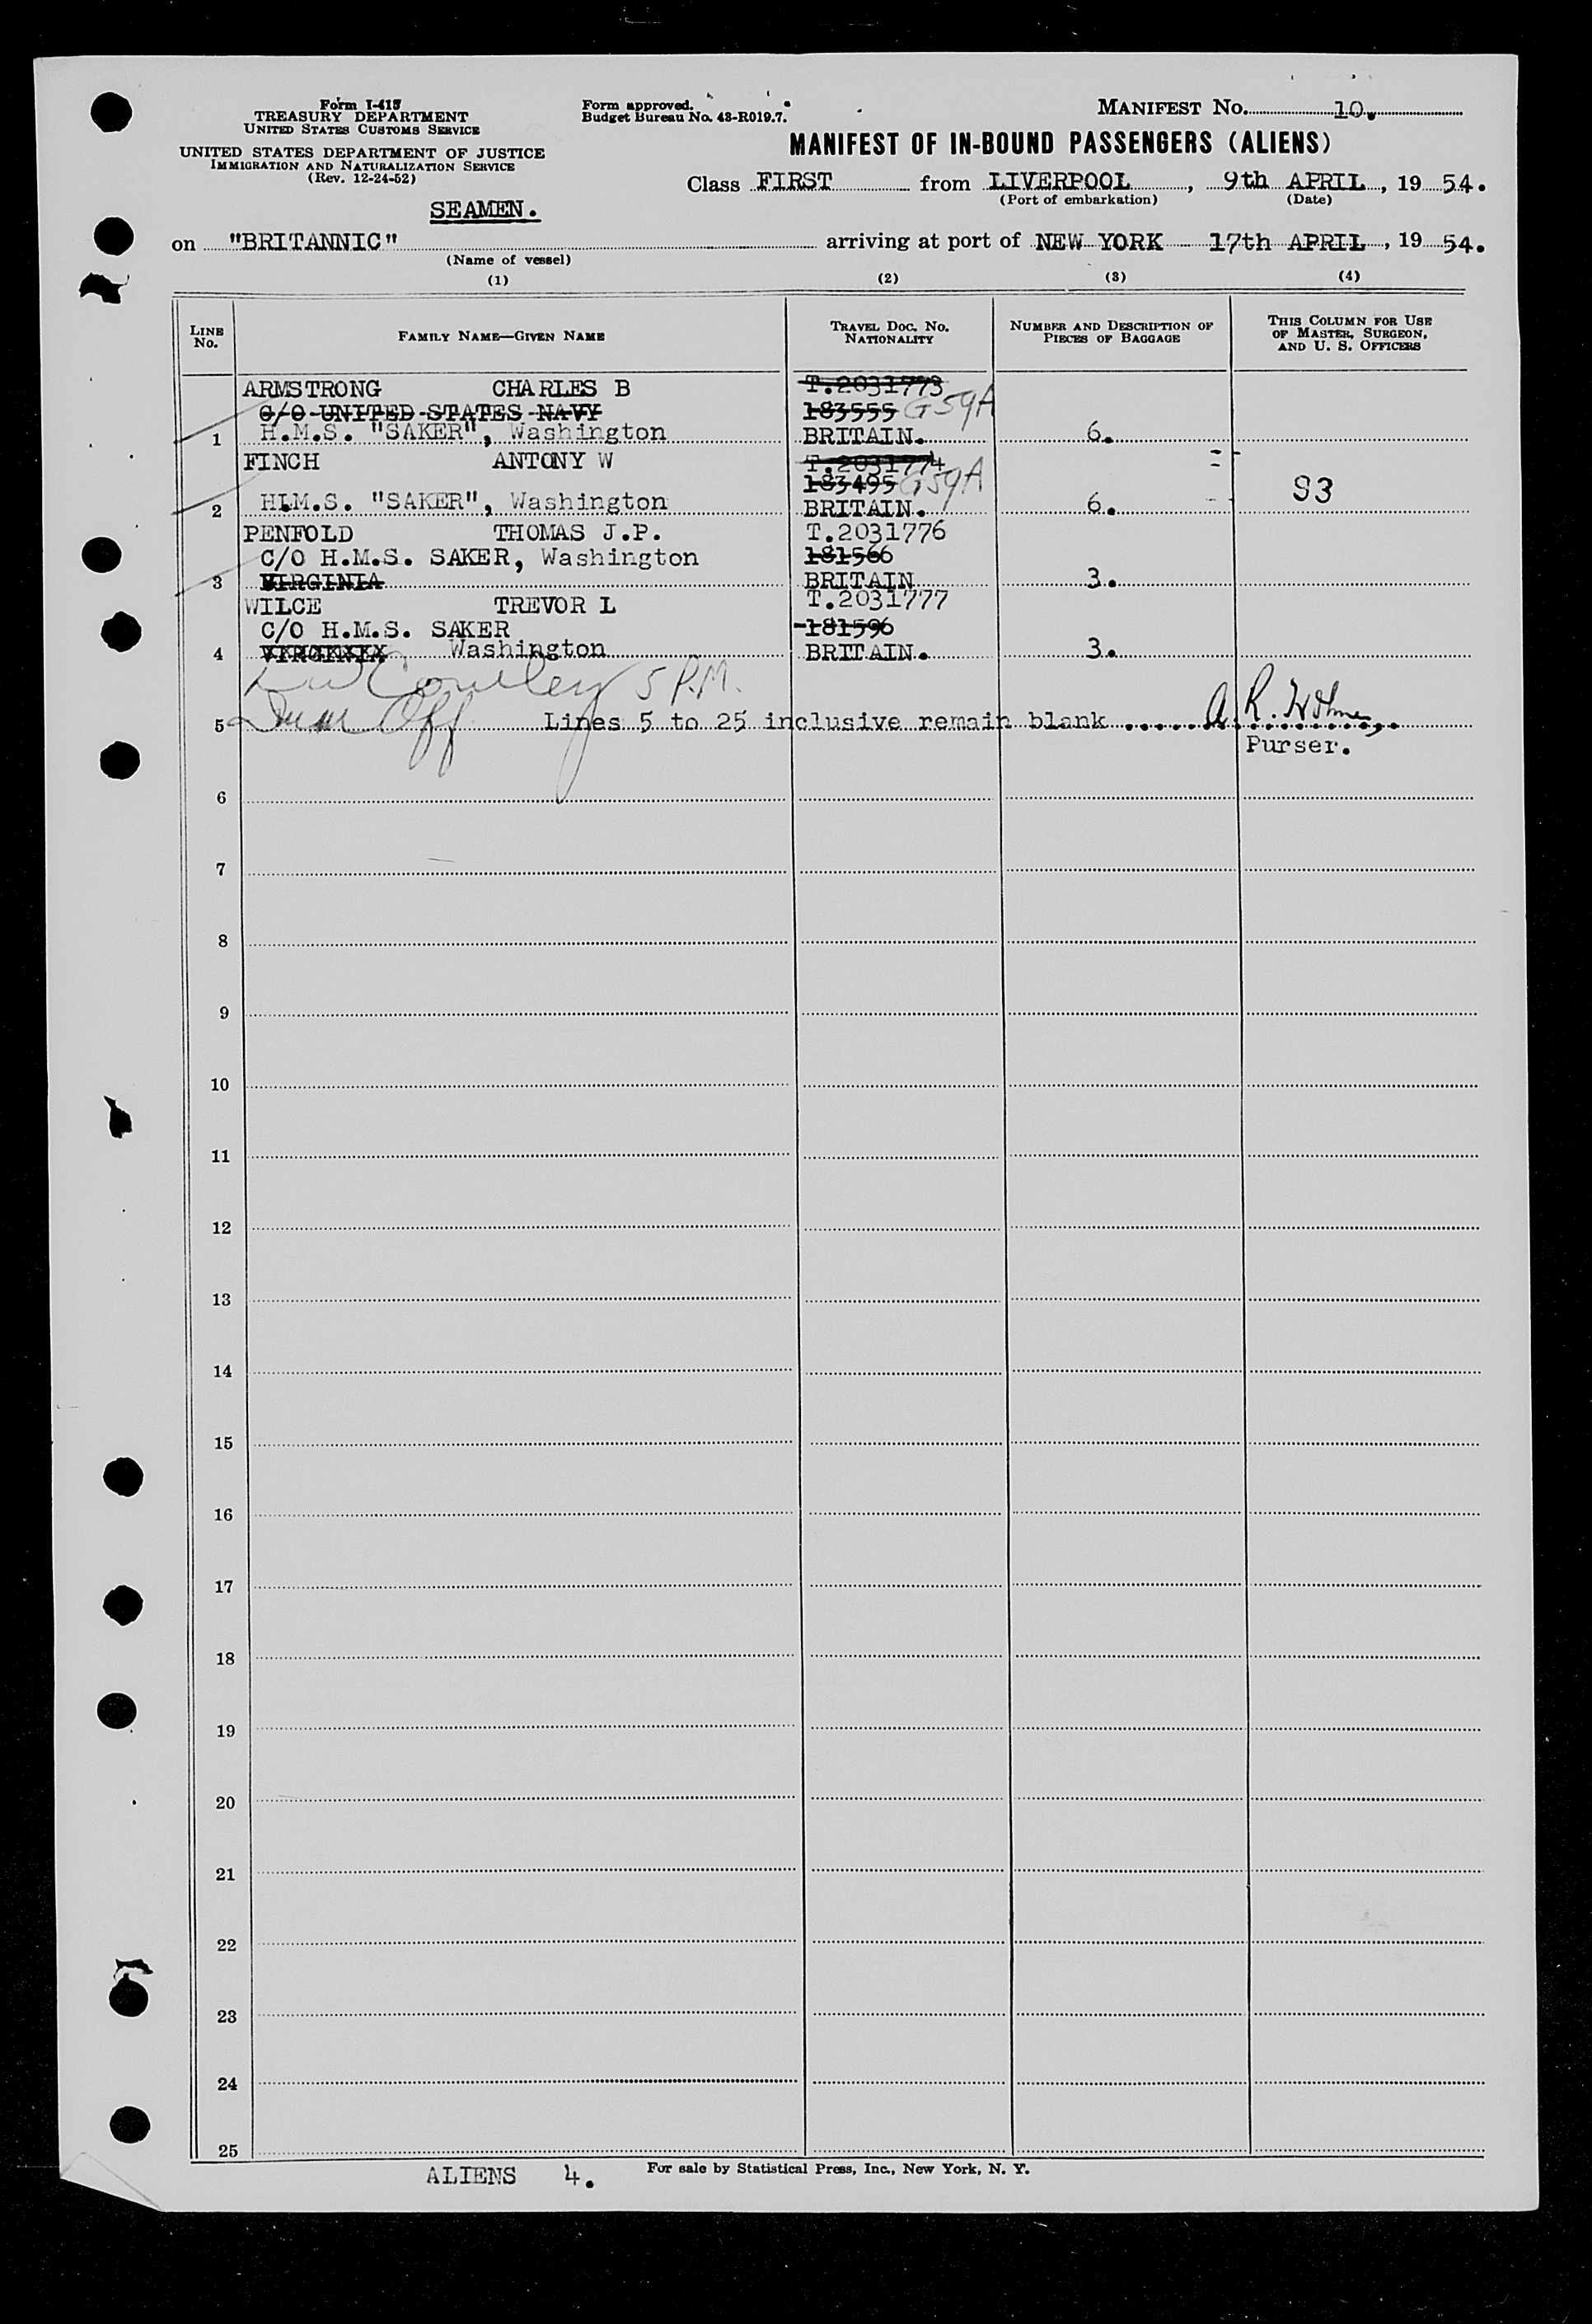 Form I-415
TREASURY DEPARTMENT
UNITED STATES CUSTOMS SERVICE
UNITED STATES DEPARTMENT OF JUSTICE
IMMIGRATION AND NATURALIZATION SERVICE
(Rev. 12-24-52)
Form approved.
Budget Bureau No. 43-R019.7.
MANIFEST No. 10.
MANIFEST OF IN-BOUND PASSENGERS (ALIENS)
Class FIRST from LIVERPOOL, 9th APRIL, 1954.
(Port of embarkation) (Date)
SEAMEN.
on "BRITANNIC" arriving at port of NEW YORK 17th APRIL, 1954.
(Name of vessel)
(1) (2) (3) (4)
LINE No. FAMILY NAME—GIVEN NAME TRAVEL DOC. NO. NATIONALITY NUMBER AND DESCRIPTION OF PIECES OF BAGGAGE THIS COLUMN FOR USE OF MASTER, SURGEON, AND U. S. OFFICERS
ARMSTRONG CHARLES B T.2031773
C/O UNITED STATES NAVY 183555 G59A
1 H.M.S. "SAKER", Washington BRITAIN. 6.
FINCH ANTONY W T.2031774
183495 G59A
2 H.M.S. "SAKER", Washington BRITAIN. 6. S3
PENFOLD THOMAS J.P. T.2031776
C/O H.M.S. SAKER, Washington 181566
3 VIRGINIA BRITAIN 3.
WILCE TREVOR L T.2031777
C/O H.M.S. SAKER 181596
4 VIRGINIA Washington BRITAIN. 3.
Cowley 5 P.M.
5 Imm Off Lines 5 to 25 inclusive remain blank ..... A.R.
Purser.
6
7
8
9
10
11
12
13
14
15
16
17
18
19
20
21
22
23
24
25
ALIENS 4. For sale by Statistical Press, Inc., New York, N. Y.